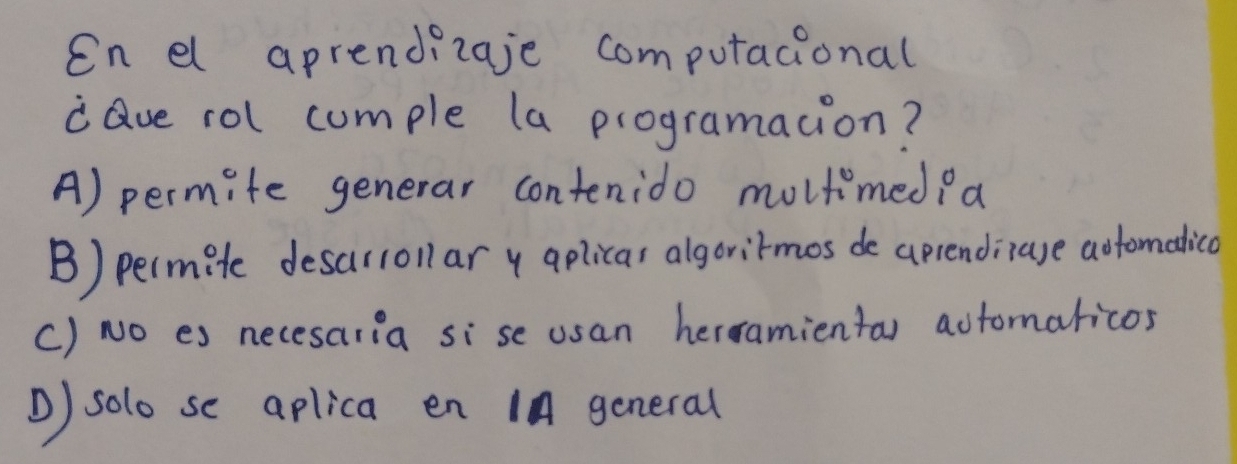 En el aprendizaje computacional
¿Que rol cumple la programacion?
A) permite generar contenido multimedia
B) permite desarrollar y aplicar algoritmos de aprendizaje automatico
C) No es necesaria si se usan herramientas automaticos
D) solo se aplica en IA general